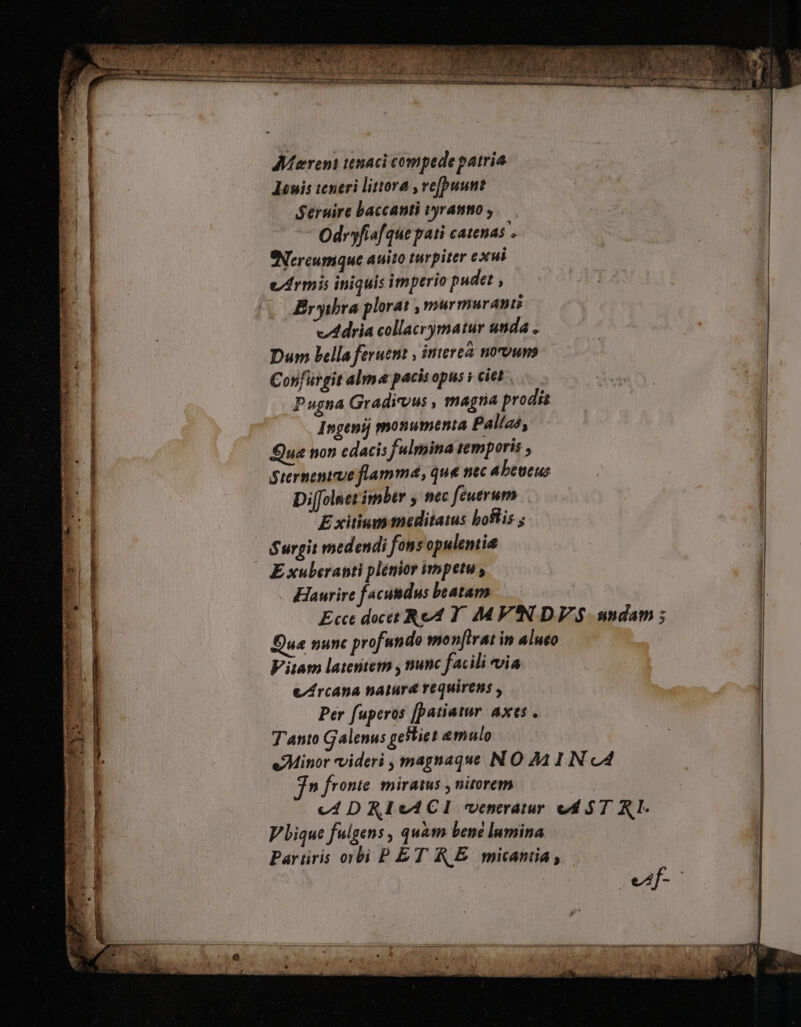 Mærent tenaci compede patria
Iouis teneri littora, reſpuunt
Seruire baccanti tyranno,
Odryſiaſque pati catenas.
Nereumque auito turpiter exui
Armis iniquis imperio pudet,
Erythra plorat, murmuranti
Adria collacrymatur unda.
Dum bella feruent, intereà novum
Conſurgit almæ pacis opus; ciet
Pugna Gradivus, magna prodit
Ingenij monumenta Pallas,
Quæ non edacis fulmina temporis,
Sternentve flammæ, quæ nec aheneus
Diſſoluet imber, nec ſeuerum
Exitium meditatus hostis;
Surgit medendi fons opulentiæ
Exuberanti plenior impetu,
Haurire facundus beatam
Ecce docet RAYMVNDVS undam;
Quæ nunc profundo monſtrat in alueo
Vitam latentem, nunc facili via
Arcana naturæ requirens,
Per ſuperos ſpatiatur axes.
Tanto Galenus gestiet æmulo
Minor videri, magnaque NOMINA
In fronte miratus, nitorem
ADRIACI veneratur ASTRI.
Vbique fulgens, quàm benè lumina
Partiris orbi PETRE micantia,
Aſ-